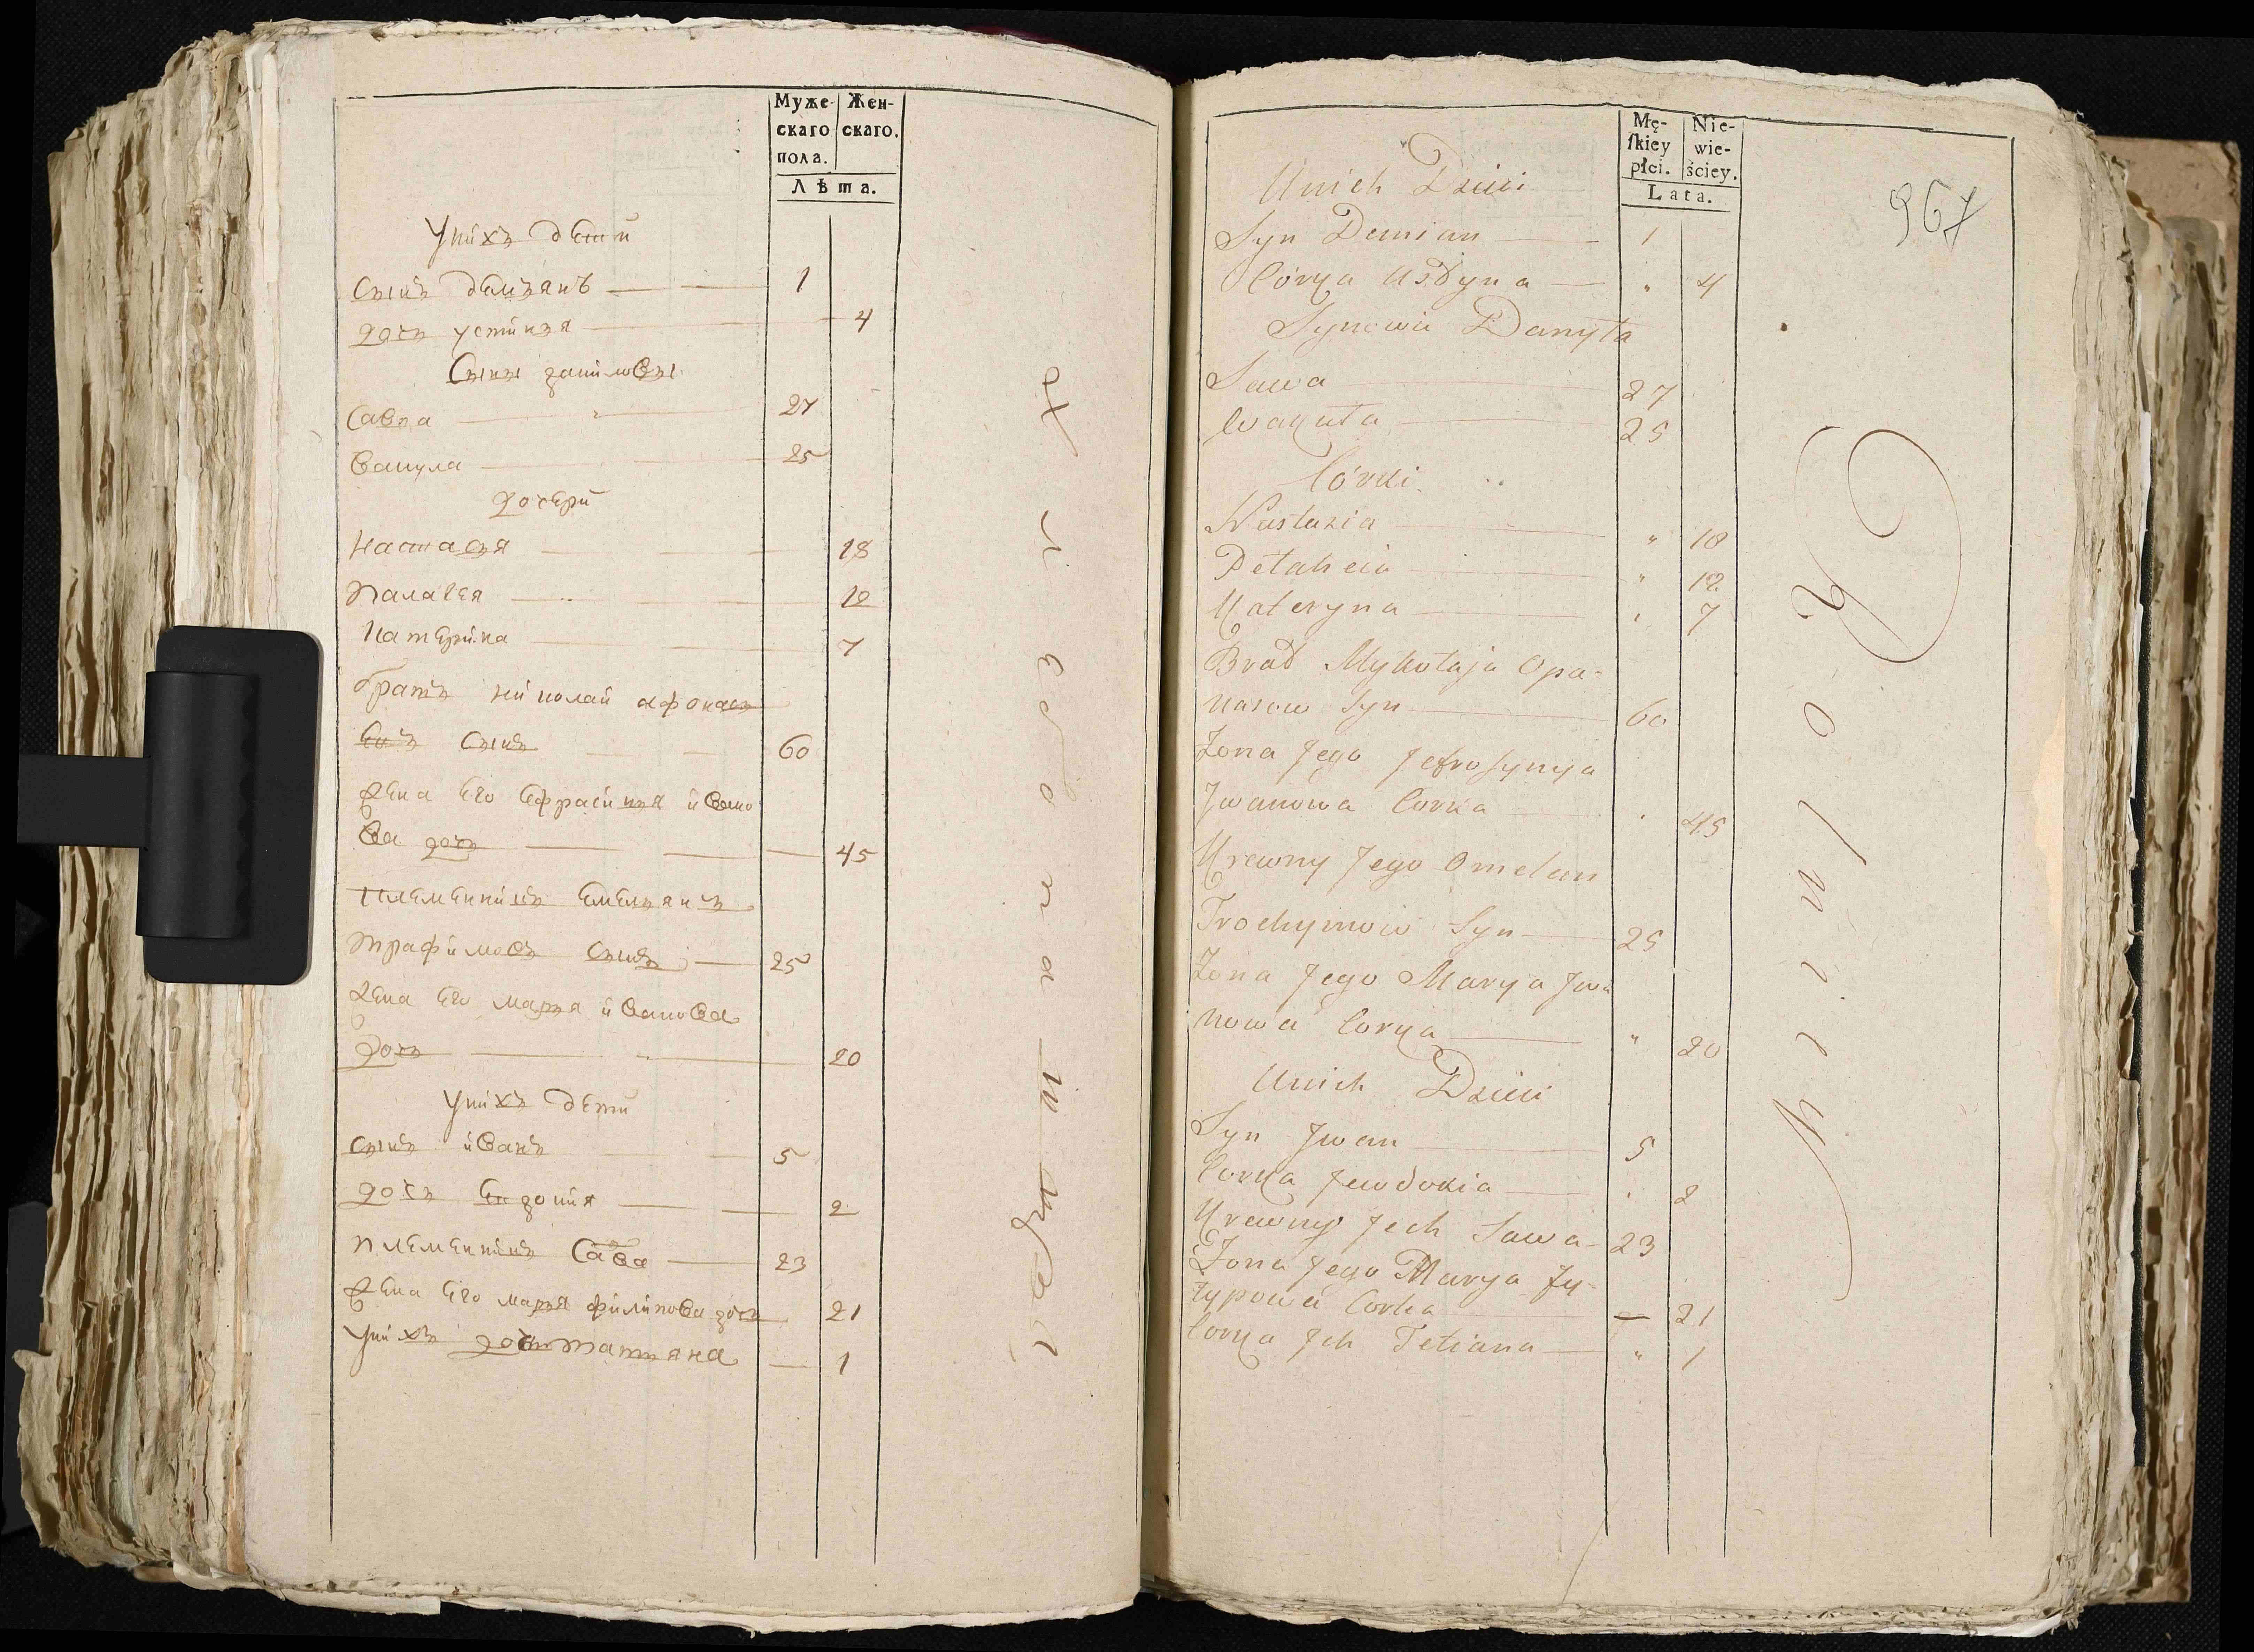 Муже-
скаго
пола.
Жен-
скаго.
Лѣта.
Унихъ дети
Сынъ демянъ 1
дочь устинья 4
Сыны даниловы
Савка 27
Вакула 25
дочери
Настасья 18
Палагея 12
Катерина 7
братъ николай афонась
евъ Сынъ 60
жена Его Ефрасинья ивано
ва дочь 45
племенникъ Емельянъ
трафимовъ Сынъ 25
жена Его марья иванова
дочь 20
Унихъ дети
сынъ иванъ 5
дочь Евдокия 2
племенникъ Сава 23
жена Его марья филипова дочь 21
Унихъ дочь татьяна 1
Mę-
ſkiey
płci.
Nie-
wie-
ściey.
Lata.
967
Unich Dzieci
Syn Demian 1
Córka Ustyna " 4
Synowie Danyła
Sawa 27
Wakuła 25
Córki
Nastazia " 18
Petaheia " 12
Kateryna " 7
Brat Mykołaja Opa-
nasow Syn 60
Żona Jego Jefrosynya
Jwanowa Corka 45
Krewny Jego Omelan
Trochymow Syn 25
Żona Jego Marya Jwa
nowa Corka " 20
Unich Dzieci
Syn Jwan 5
Corka Jewdokia 2
Krewny Jech Sawa 23
Żona Jego Marya Fy-
lypowa Corka — 21
Corka Jch Tetiana " 1